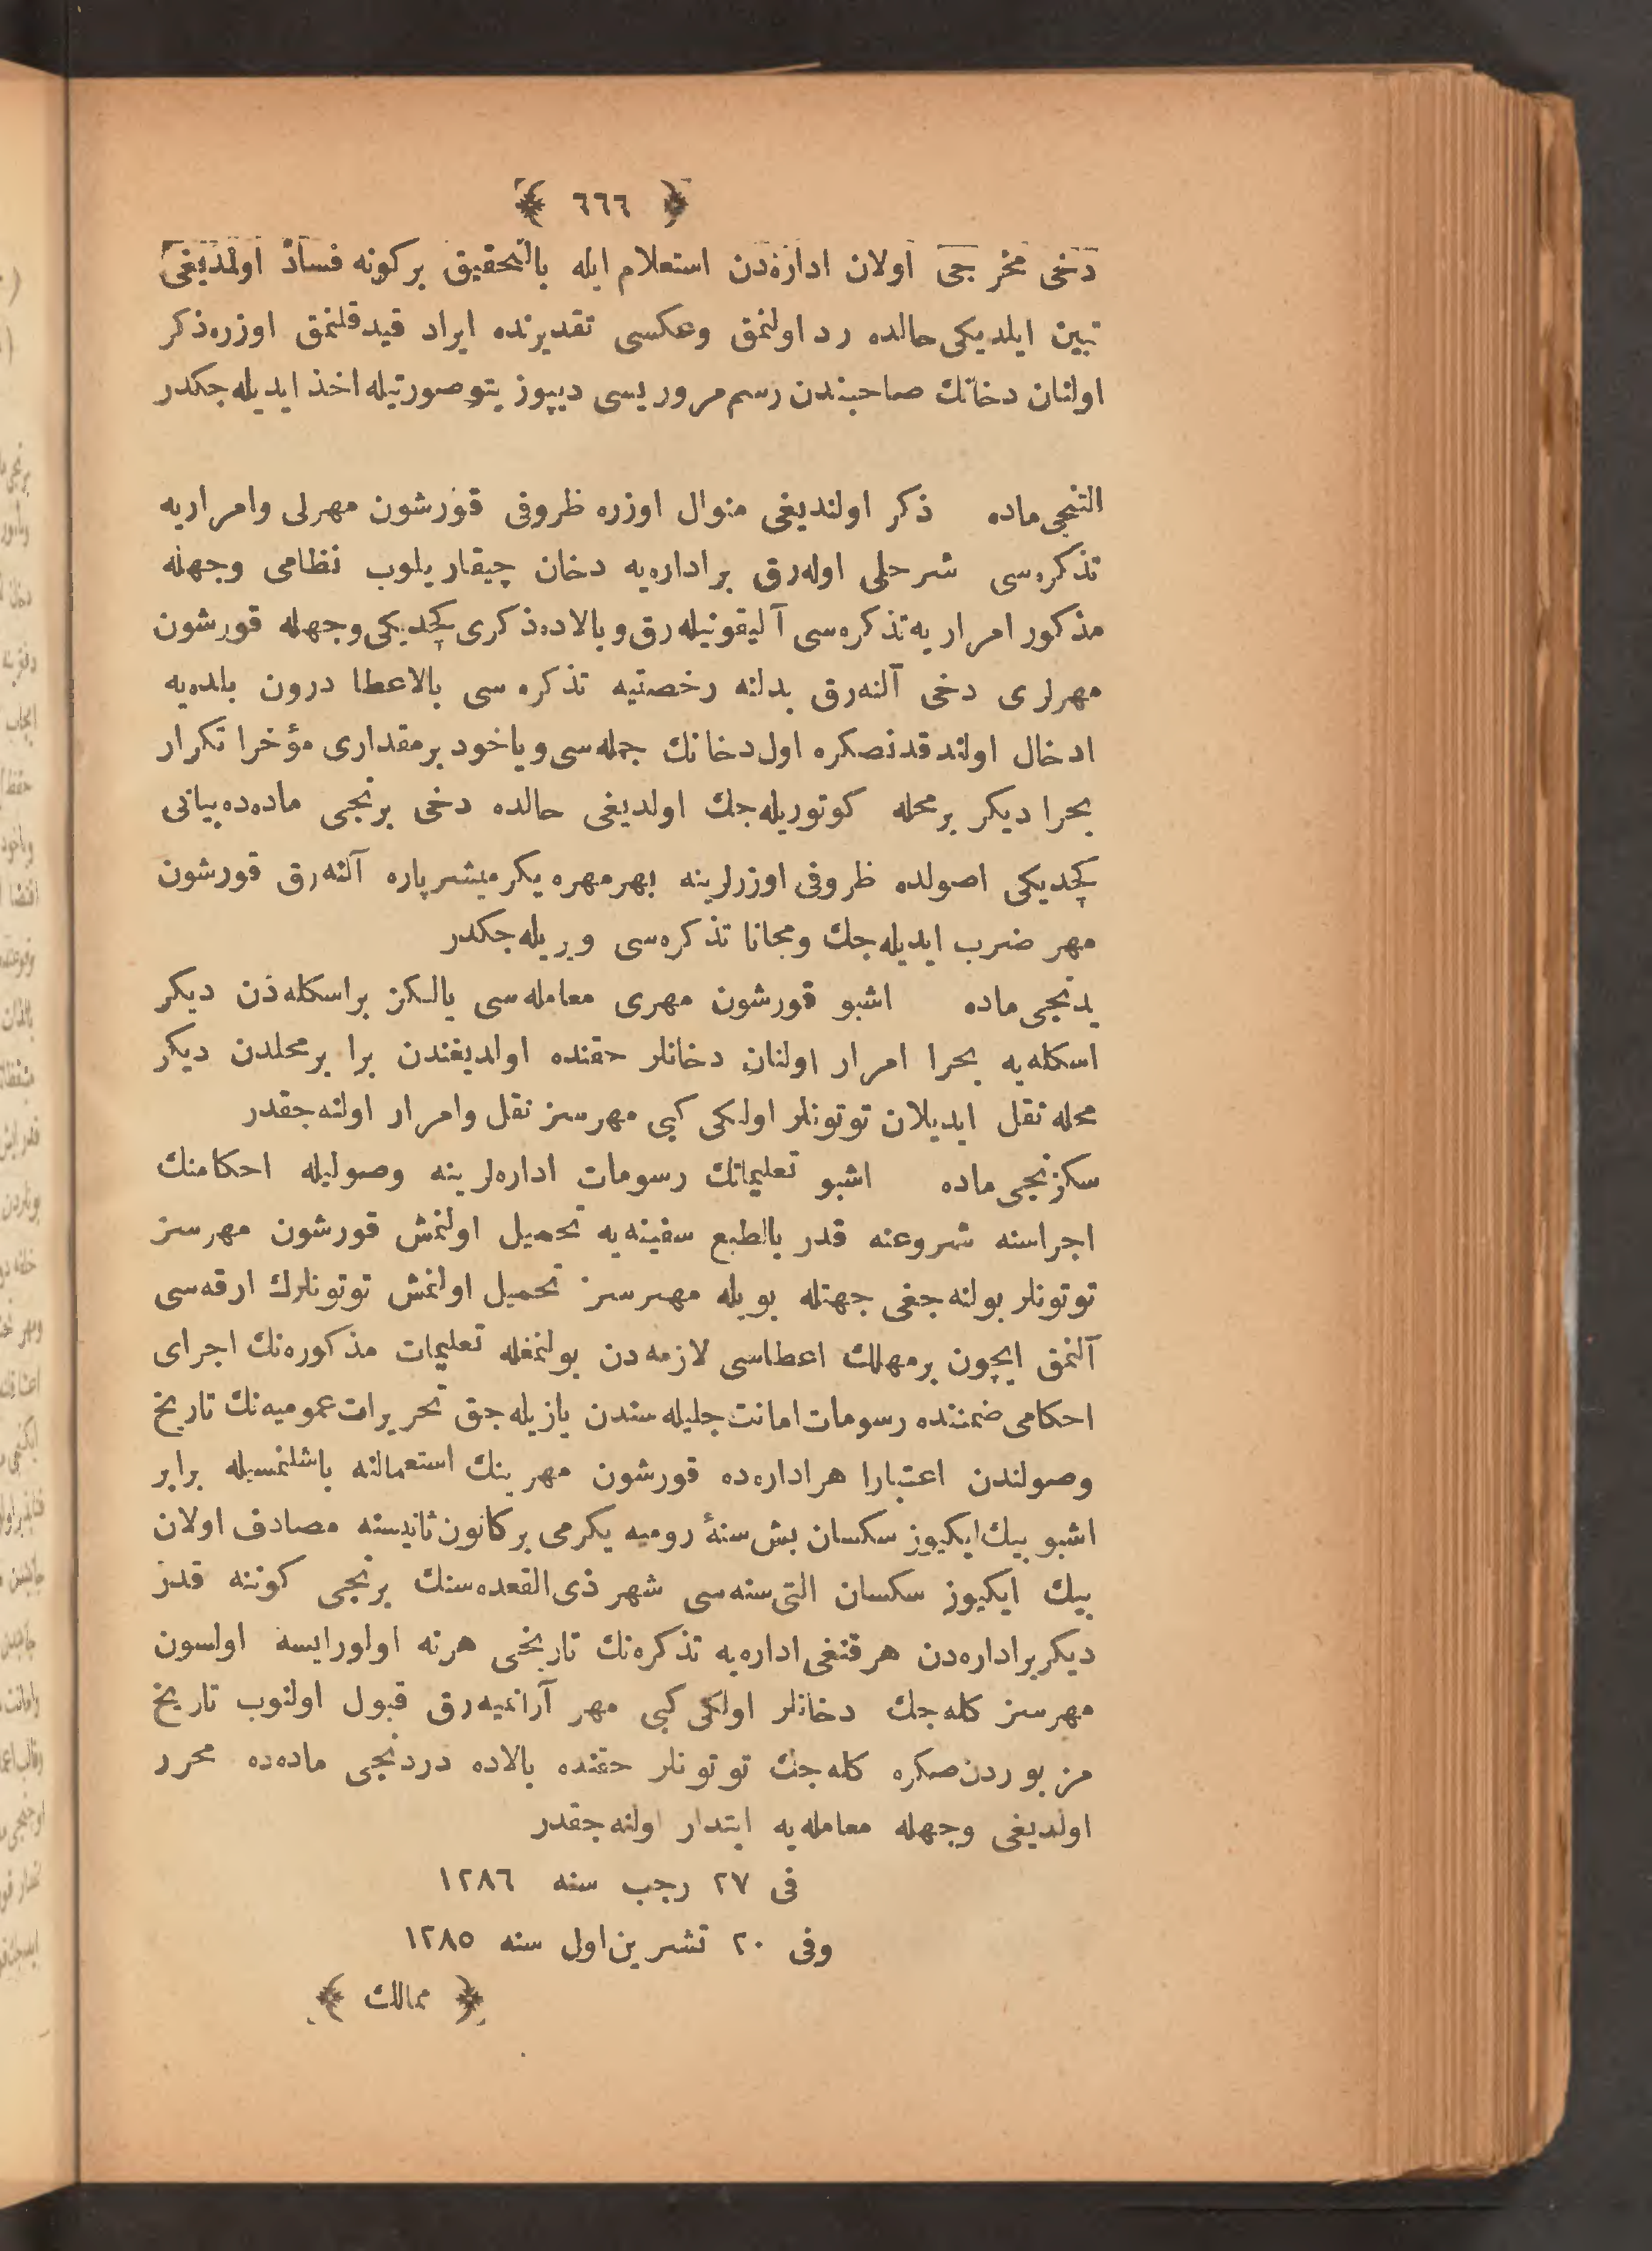 ﴿ ٦٦٦ ﴾
دخی مخرجی اولان اداره‌دن استعلام ایله بالتحقیق بر کونه فساد اولمدیغی
تبین ایلدیکی حالده رد اولنمق وعکسی تقدیرنده ایراد قید قلنمق اوزره ذکر
اولنان دخانك صاحبندن رسم مروریسی دیپوزیتو صورتیله اخذ ایدیله‌جکدر
التنجی ماده ذکر اولندیغی منوال اوزره ظروفی قورشون مهرلی وامراریه
تذکره‌سی شرحلی اوله‌رق بر اداره‌یه دخان چیقاریلوب نظامی وجهله
مذکور امراریه تذکره‌سی آلیقونیله‌رق وبالاده ذکری کچدیکی وجهله قورشون
مهرلری دخی آلنه‌رق بدلنه رخصتیه تذکره‌سی بالاعطا درون بلده‌یه
ادخال اولندقدنصکره اول دخانك جمله‌سی ویاخود بر مقداری مؤخرا تکرار
بحرا دیکر بر محله کوتوریله‌جك اولدیغی حالده دخی برنجی ماده‌ده بیانی
کچدیکی اصولده ظروفی اوزرلرینه بهر مهره یکرمیشر پاره آلنه‌رق قورشون
مهر ضرب ایدیله‌جك ومجانا تذکره‌سی ویریله‌جکدر
یدنجی ماده اشبو قورشون مهری معامله‌سی یالکز بر اسکله‌دن دیکر
اسکله‌یه بحرا امرار اولنان دخانلر حقنده اولدیغندن برا بر محلدن دیکر
محله نقل ایدیلان توتونلر اولکی کبی مهرسز نقل وامرار اولنه‌جقدر
سکزنجی ماده اشبو تعلیماتك رسومات اداره‌لرینه وصولیله احکامنك
اجراسنه شروعنه قدر بالطبع سفینه‌یه تحمیل اولنمش قورشون مهرسز
توتونلر بولنه‌جغی جهتله بویله مهرسز تحمیل اولنمش توتونلرك ارقه‌سی
آلنمق ایچون بر مهلت اعطاسی لازمه‌دن بولنمغله تعلیمات مذکوره‌نك اجرای
احکامی ضمننده رسومات امانت جلیله‌سندن یازیله‌جق تحریرات عمومیه‌نك تاریخ
وصولندن اعتبارا هر اداره‌ده قورشون مهرینك استعمالنه باشلنمسیله برابر
اشبو بیك ایکیوز سکسان بش سنهٔ رومیه یکرمی بر کانون ثانیسنه مصادف اولان
بیك ایکیوز سکسان التی سنه‌سی شهر ذی القعده‌سنك برنجی کوننه قدر
دیکر بر اداره‌دن هر قنغی اداره‌یه تذکره‌نك تاریخی هر نه اولورایسه اولسون
مهرسز کله‌جك دخانلر اولکی کبی مهر آرانمیه‌رق قبول اولنوب تاریخ
مزبوردن صکره کله‌جك توتونلر حقنده بالاده دردنجی ماده‌ده محرر
اولدیغی وجهله معامله‌یه ابتدار اولنه‌جقدر
فی ٢٧ رجب سنه ١٢٨٦
وفی ٢٠ تشرین اول سنه ١٢٨٥
﴿ ممالك ﴾